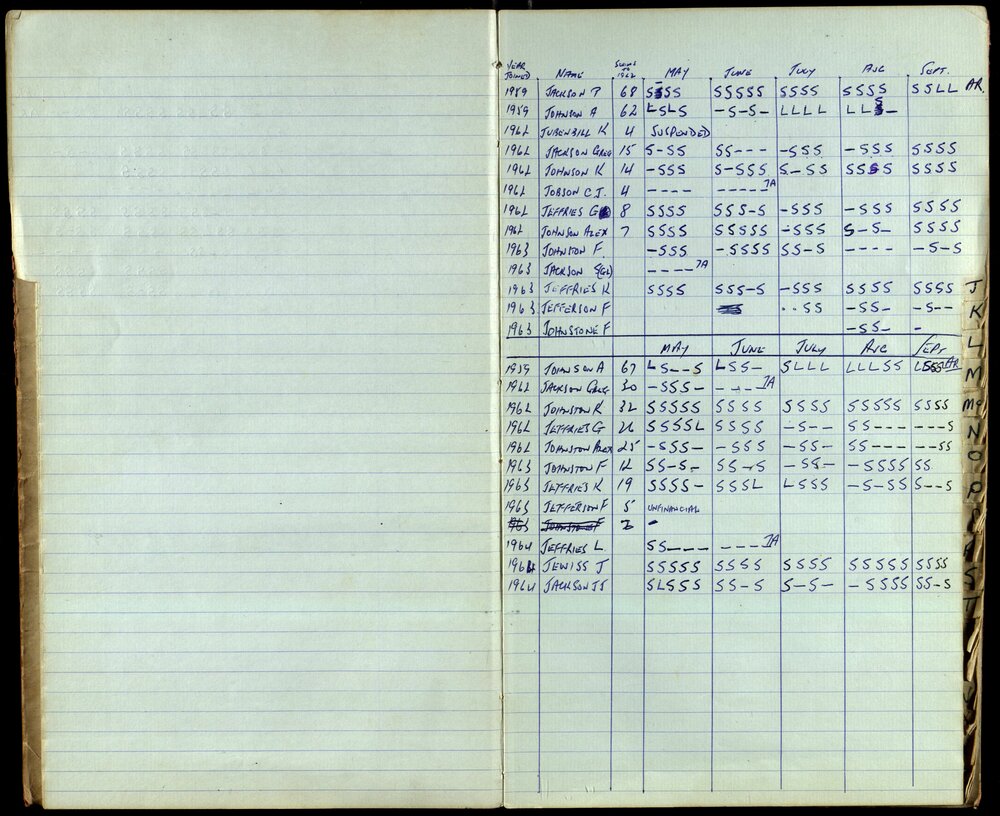 YEAR JOINED NAME SWIMS TO 1962 MAY JUNE JULY AUG SEPT.
1959 JACKSON P 68 SSSS SSSSS SSSS SSSS SSLL AR.
1959 JOHNSON A 62 LSLS -S-S- LLLL LLS-
1962 JUBENBILL K 4 SUSPENDED
1962 JACKSON GREG 15 S-SS SS--- -SSS -SSS SSSS
1962 JOHNSON K 14 -SSS S-SSS S-SS SSSS SSSS
1962 JOBSON C.J. 4 ---- ----- TA
1962 JEFFRIES G 8 SSSS SSS-S -SSS -SSS SSSS
1962 JOHNSON ALEX 7 SSSS SSSSS -SSS S-S- SSSS
1963 JOHNSTON F. -SSS -SSSS SS-S ---- -S-S
1963 JACKSON S(GL) ---- TA
1963 JEFFRIES K SSSS SSS-S -SSS SSSS SSSS
1963 JEFFERSON F --SS -SS- -S--
1963 JOHNSTONE F -SS- -
MAY JUNE JULY AUG SEPT
1959 JOHNSON A 67 LS--S LSS- SLLL LLLSS LSSS AR
1962 JACKSON GREG 30 -SSS- ---- TA
1962 JOHNSTON K 32 SSSSS SSSS SSSS SSSSS SSSS
1962 JEFFRIES G 26 SSSSL SSSS -S-- SS--- ---S
1962 JOHNSTON ALEX 25 -SSS- -SSS -SS- SS--- --SS
1963 JOHNSTON F 12 SS-S- SS-S -SS- -SSSS SS
1963 JEFFRIES K 19 SSSS- SSSL LSSS -S-SS S--S
1963 JEFFERSON F 5 UNFINANCIAL
1963 JOHNSTONE F 3 -
1964 JEFFRIES L. SS--- ---- TA
1964 JEWISS J SSSSS SSSS SSSS SSSSS SSSS
1964 JACKSON JJ SLSSS SS-S S-S- -SSSS SS-S
J
K
L
M
Mc
N
O
P
R
S
T